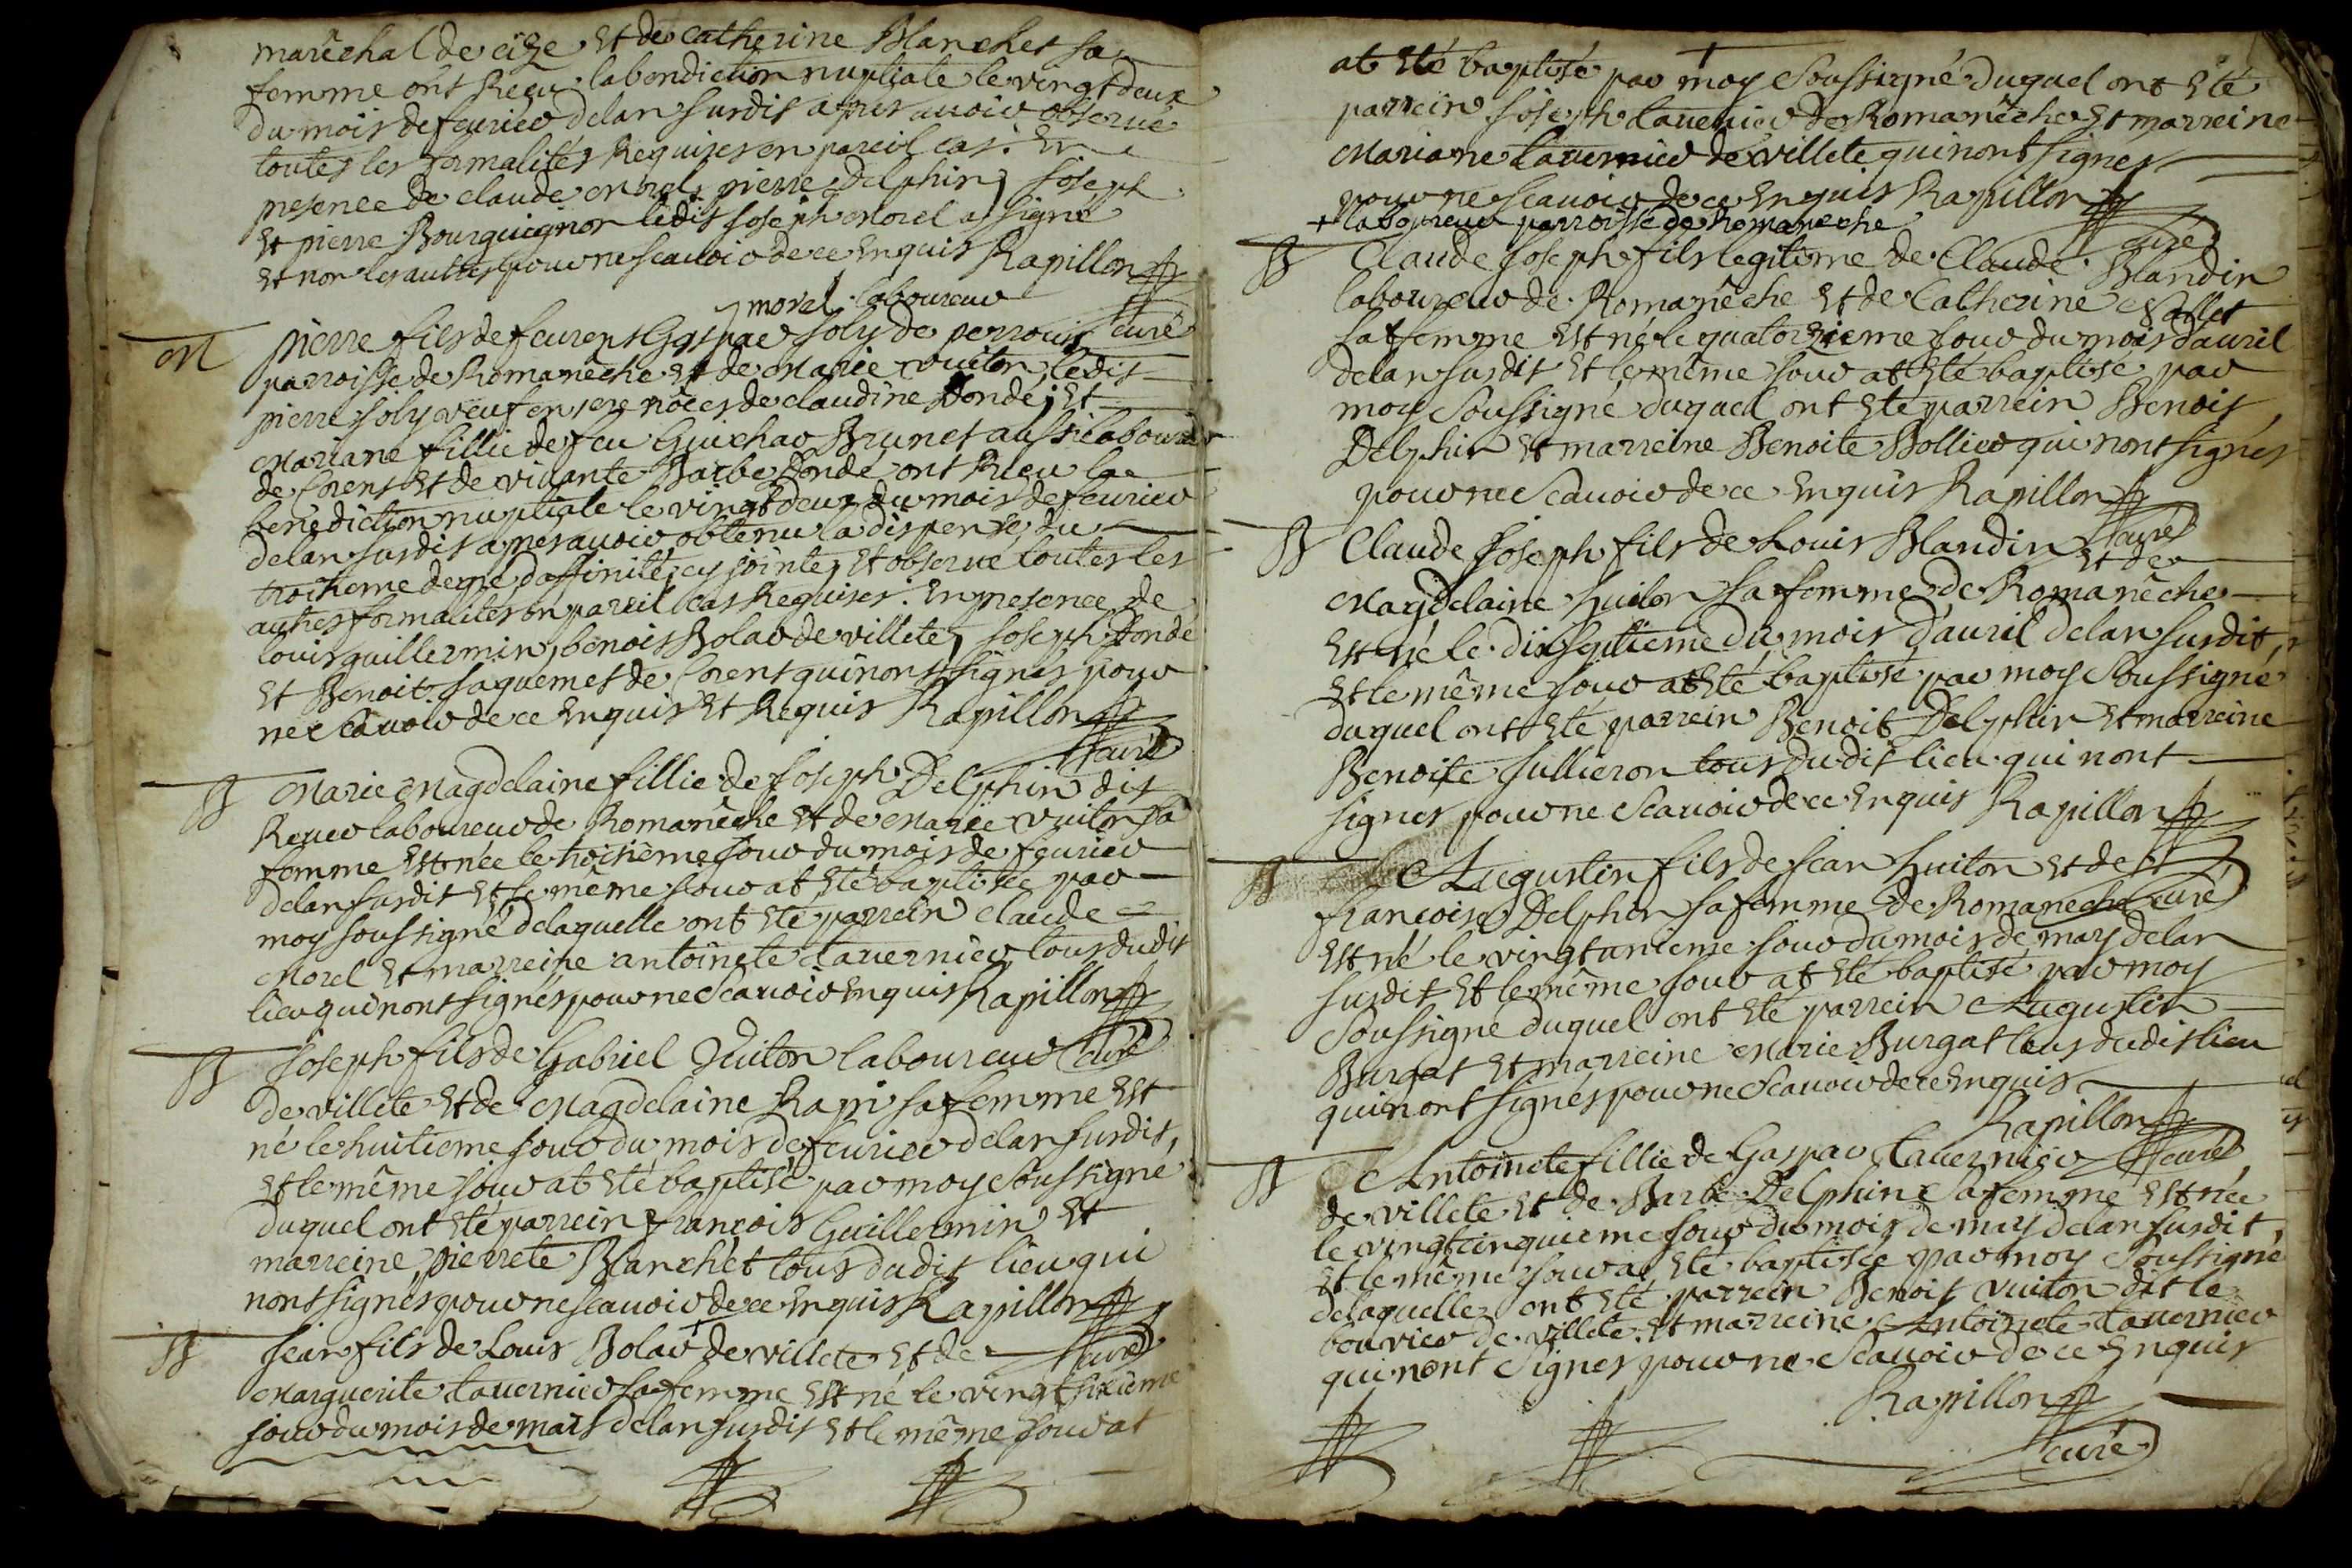 maréchal de cize et de catherine Blanchet sa
femme ont Recu la bendiction nuptiale le vingt deux
du mois de feurier de lan susdit apres auoir obserué
toutes les formalités Requises en pareil cas. En
presence de claude morel, pierre Delphin, Joseph
et pierre Bourguignon ledit Joseph morel a signé
et non les autres pour ne scauoir de ce enquis Rapillon
curé
morel laboureur
M pierre fils de feu Joly de perrouse
parroisse de Romanêche et de Marie vuiton, ledit
pierre Joly veuf en 1ere nôces de claudine Donde; Et
Mariane fillie de feu Guichar Brunet aussi laboureur
de Corent et de viuante Barbe Donde ont Recu la
benediction nuptiale le vingt deux du mois de feurier
de lan susdit apres auoir obtenu la dispense du
troisieme degré daffinité, cy jointe, et obserué toutes les
autres formalites en pareil cas Requises. En presence de
Louis guillermin, benoit Bolar de villete, Joseph Donde
et Benoit Jaquemet de Corent qui nont signés pour
ne scauoir de ce enquis et Requis Rapillon
curé
B Marie Magdelaine fillie de Joseph Delphin dit
laboureur de Romanêche et de Marie vuiton sa
femme est née le troisième jour du mois de feurier
de lan susdit et le même jour at eté baptisée par
moy soussigné de laquelle ont eté parrein claude
Morel et marreine antoinete tauernier tous dudit
lieu qui nont signés pour ne scauoir enquis Rapillon
curé
B Joseph fils de Gabriel Vuiton laboureur
de villete et de Magdelaine Rapi sa femme est
né le huitieme jour du mois de feurier de lan susdit,
et le même jour at eté baptisé par moy soussigné
duquel ont eté parrein françois Guillermin et
marreine pierrete Blanchet tous dudit lieu qui
nont signés pour ne scauoir de ce enquis Rapillon
curé
B Jean fils de Louis Bolar + de villete et de
Marguerite tauernier sa femme est né le vingt sixieme
jour du mois de mars de lan susdit et le même jour at
at eté baptisé par moy soussigné duquel ont eté
parrein Joseph tauernier de Romanêche et marreine
Mariane tauernier de villete qui nont signés
pour ne scauoir de ce enquis Rapillon
curé
+ laboureur parroisse de Romaneche
B Claude Joseph fils legitime de Claude Blandin
laboureur de Romanêche et de Catherine vallet
sa femme est né le quatorzieme jour du mois dauril
de lan susdit et le même jour at eté baptisé par
moy soussigné duquel ont eté parrein Benoit
Delphin et marreine Benoite Bollier qui nont signés
pour ne scauoir de ce enquis Rapillon
curé
B Claude Joseph fils de Louis Blandin et de
Magdelaine huiton sa femme de Romanêche
est né le dixseptieme du mois dauril de lan susdit,
et le même jour at eté baptisé par moy soussigné
duquel ont eté parrein Benoit Delphin et marreine
Benoite Jullieron tous dudit lieu qui nont
signés pour ne scauoir de ce enquis Rapillon
curé
B Augustin fils de Jean huiton et de
francoise Delphin sa femme de Romaneche
est né le vingt unieme jour du mois de may de lan
susdit et le même jour at eté baptisé par moy
soussigné duquel ont eté parrein Augustin
Burgat et marreine Marie Burgat tous dudit lieu
qui nont signés pour ne scauoir de ce enquis
Rapillon
curé
B Antoinete fillie de Gaspar tauernier
de villete et de Barbe Delphin sa femme est née
le vingt cinquieme jour du mois de may de lan susdit,
et le même jour at eté baptisée par moy soussigné
de laquelle ont eté parrein Benoit vuiton dit le
bouvier de villete et marreine Antoinete tauernier
qui nont signés pour ne scauoir de ce enquis
Rapillon
curé